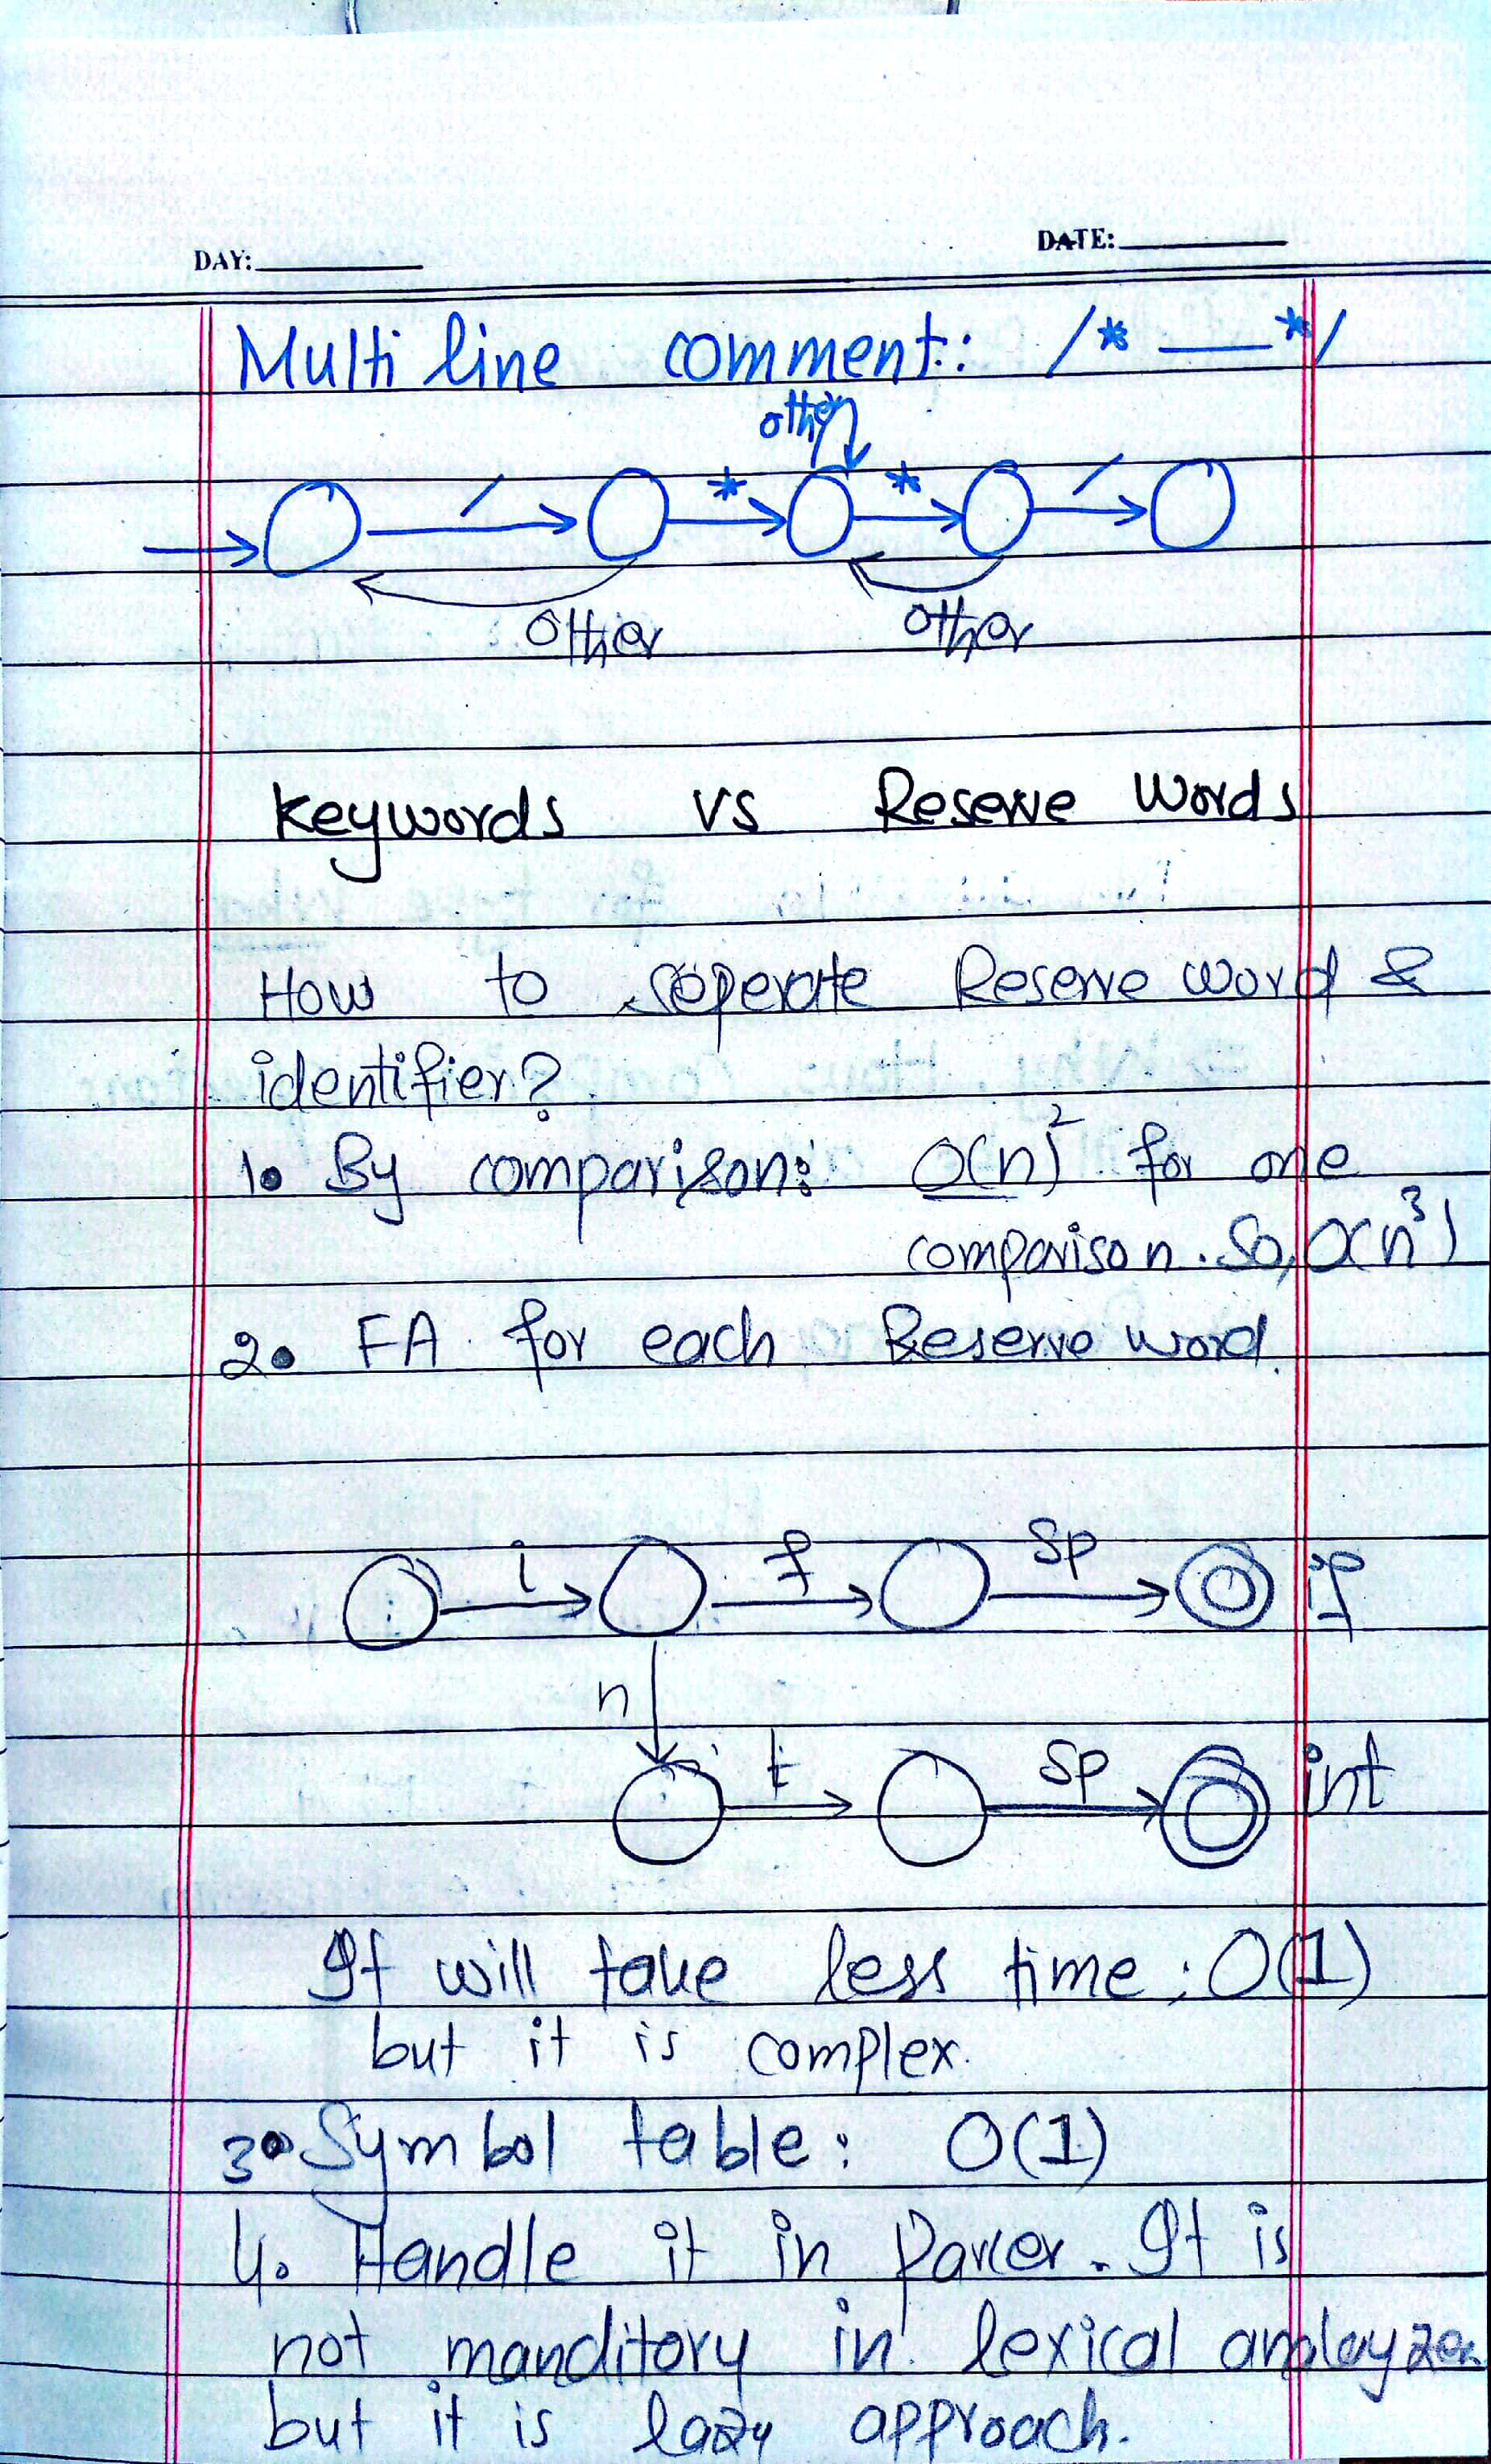 DAY:
DATE:
Multi line comment: /* — */
other
/ * * /
other other
Keywords vs Reserve Words
How to seperate Reserve word &
identifier?
1. By comparison: O(n)² for one
comparison. So, O(n³)
2. FA for each Reserve word.
i f sp if
n t sp int
It will take less time; O(1)
but it is complex.
3. Symbol table: O(1)
4. Handle it in Parcer. It is
not manditory in lexical anplayzer
but it is lazy approach.